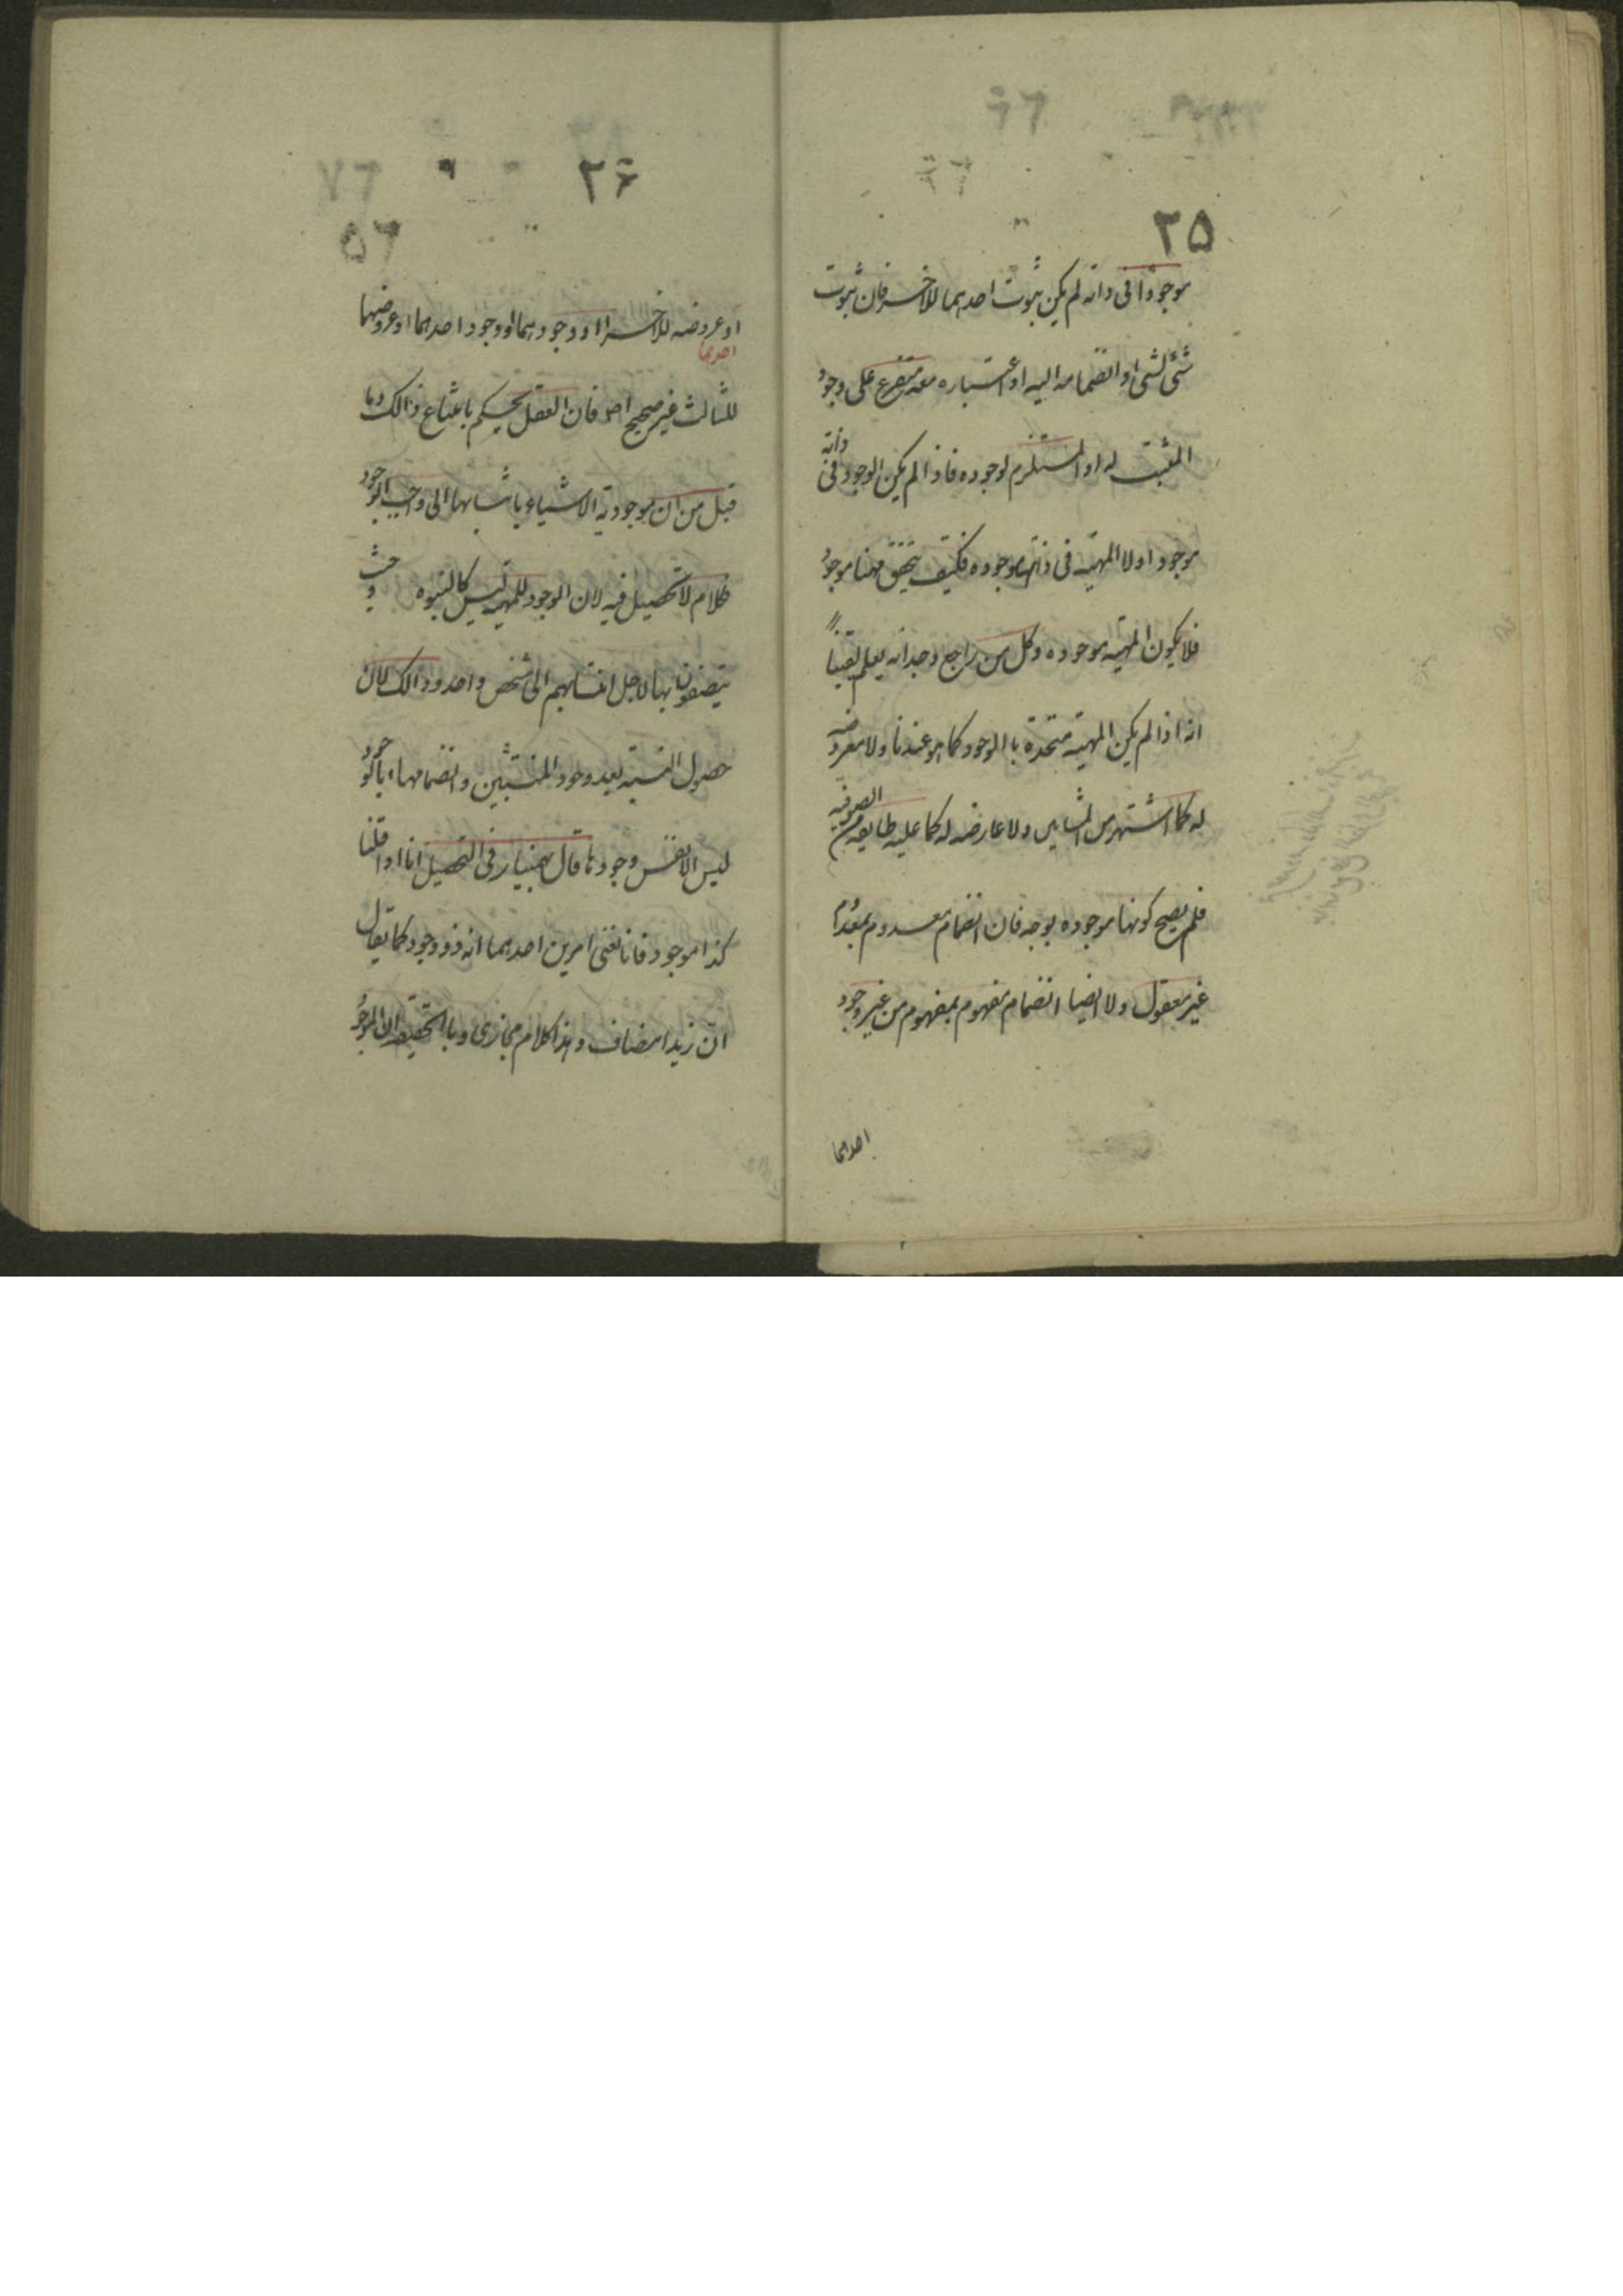 ٢٥
موجودا فى ذاته لم يكن ثبوت احدهما للاخر فان ثبوت
شئ لشئ او انضمامه اليه او اعتباره معه متفرع على وجود
المثبت له او المستلزم لوجوده فاذا لم يكن الوجود فى ذاته
موجود اولا المهيته فى ذاتها موجوده فكيف يتحقق مهنا موجود
فلا يكون المهيته موجوده وكل من راجع وجدانه يعلم يقيناً
انه اذا لم يكن المهيته متحدة با الوجود كما هو عندنا ولا معروضه
له كما اشتهر من المشايين ولا عارضه له كما عليه طايفه من الصوفيه
فلم يصح كونها موجوده بوجه فان انضمام معدوم بمعدوم
غير معقول ولا ايضا انضمام مفهوم بمفهوم من غير وجود
احدهما
٢٦
او عروضه للاخر او وجودهما او وجود احدهما او عروضهما
احدهما
للثالث غير صحيح اصلا فان العقل يحكم بامتناع ذالك وما
قيل من ان موجودية الاشياء بانتسابها الى واجب الوجود
فكلام لا تحصيل فيه لان الوجود للمهيه ليس كالبنوه حيث
يتصفون بها لاجل انتسابهم الى شخص واحد وذالك لان
حصول النسبته بعد وجود المنتسبين واتصافها بالوجود
ليس الا نفس وجودها قال بهمنيار فى التحصيل انا اذا قلنا
كذا موجود فانا نعنى امرين احدهما انه ذو وجود كما يقال
ان زيدا مضاف وهذا كلام مجازى وبا الحقيقه ان الموجود